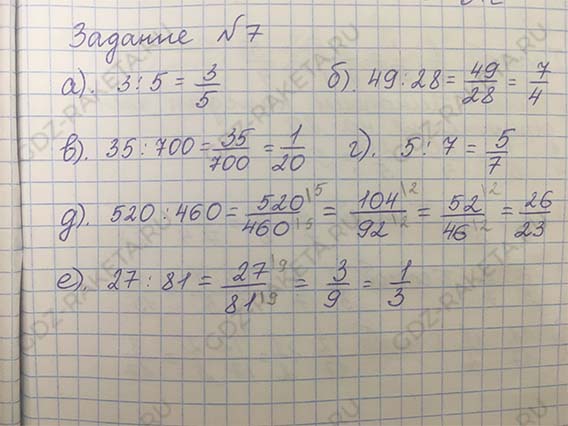 Задание № 7
а). 3 : 5 = 3/5 б). 49 : 28 = 49/28 = 7/4
в). 35 : 700 = 35/700 = 1/20 г). 5 : 7 = 5/7
д). 520 : 460 = 520|5/460|5 = 104|2/92|2 = 52|2/46|2 = 26/23
е). 27 : 81 = 27|9/81|9 = 3/9 = 1/3
GDZ-RAKETA.RU